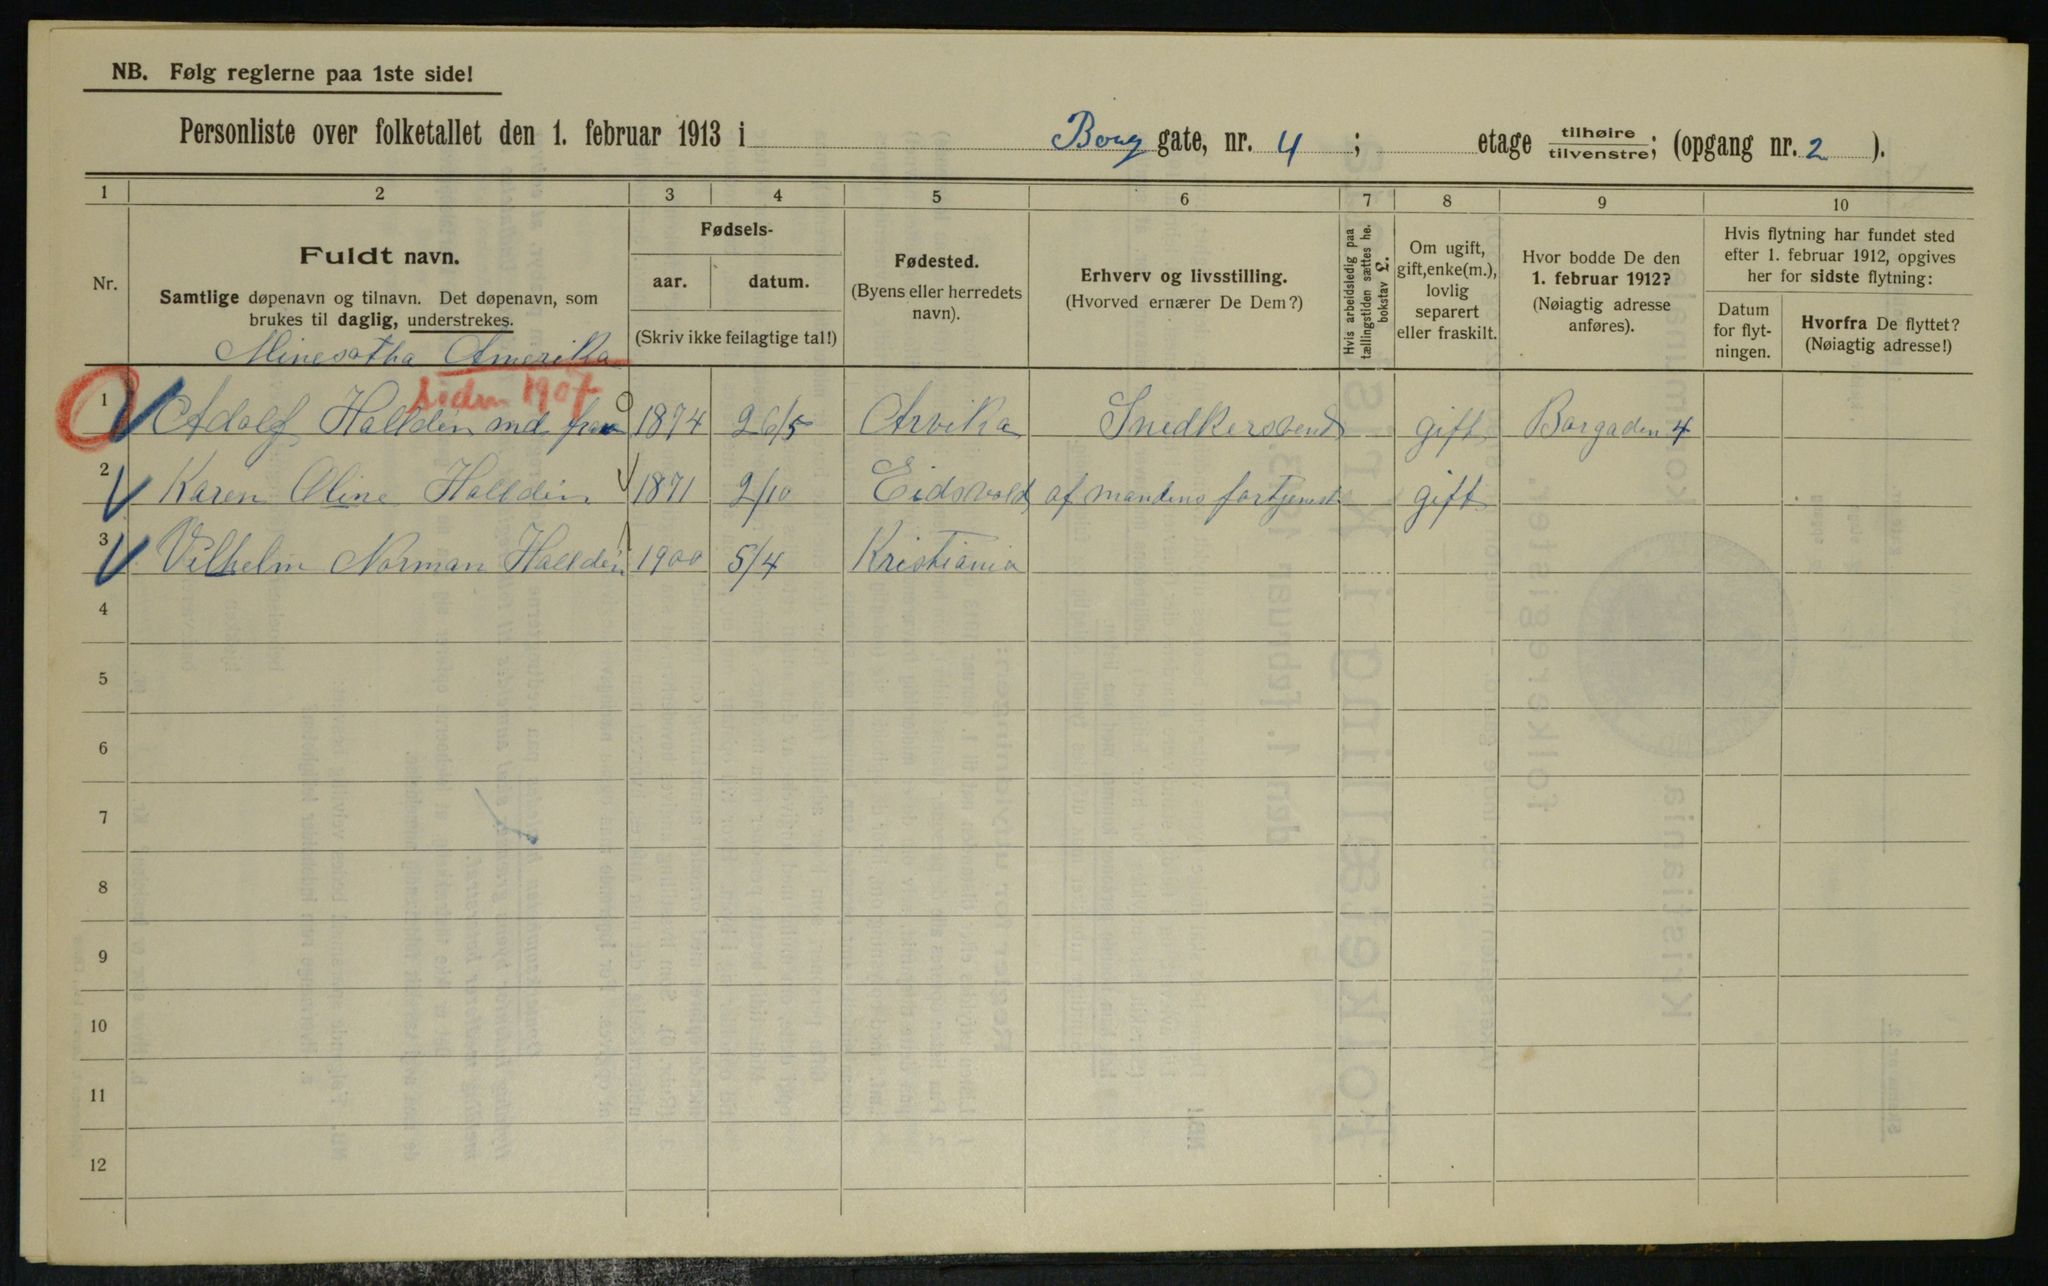 NB. Følg reglerne paa 1ste side!
Personliste over folketallet den 1. februar 1913 i Borg gate, nr. 4 ; etage tilhøire/tilvenstre; (opgang nr. 2 ).
1 2 3 4 5 6 7 8 9 10
Nr.
Fuldt navn.
Samtlige døpenavn og tilnavn. Det døpenavn, som
brukes til daglig, understrekes.
Fødsels-
aar. datum.
(Skriv ikke feilagtige tal!)
Fødested.
(Byens eller herredets
navn).
Erhverv og livsstilling.
(Hvorved ernærer De Dem?)
Hvis arbeidsledig paa
tællingstiden sættes he.
bokstav £.
Om ugift,
gift,enke(m.),
lovlig
separert
eller fraskilt.
Hvor bodde De den
1. februar 1912?
(Nøiagtig adresse
anføres).
Hvis flytning har fundet sted
efter 1. februar 1912, opgives
her for sidste flytning:
Datum
for flyt-
ningen.
Hvorfra De flyttet?
(Nøiagtig adresse!)
Minesotha Amerika
siden 1907
1 Adolf Halldin 1874 26/5 Arvika Snedkersvend gift Borgaden 4
2 Karen Oline Halldin 1871 2/10 Eidsvold af mandens fortjenest gift
3 Vilhelm Norman Halldin 1900 5/4 Kristiania
4
5
6
7
8
9
10
11
12